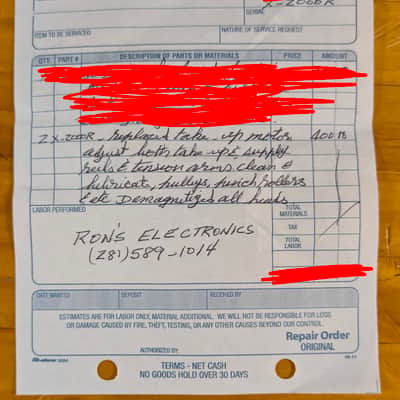 X-2000R
SERIAL
ITEM TO BE SERVICED NATURE OF SERVICE REQUEST
QTY. PART # DESCRIPTION OF PARTS OR MATERIALS PRICE AMOUNT
2 X-2000R - replaced take-up motor 400
adjust both take-up & supply
reels & tension arms clean &
lubricate, pulleys, pinch rollers
& etc Demagnetized all heads
LABOR PERFORMED
TOTAL MATERIALS
TAX
TOTAL LABOR
RON'S ELECTRONICS
(281) 589-1014
DATE WANTED DEPOSIT RECEIVED BY
ESTIMATES ARE FOR LABOR ONLY, MATERIAL ADDITIONAL. WE WILL NOT BE RESPONSIBLE FOR LOSS
OR DAMAGE CAUSED BY FIRE, THEFT, TESTING, OR ANY OTHER CAUSES BEYOND OUR CONTROL.
Repair Order
ORIGINAL
AUTHORIZED BY:
TERMS - NET CASH
NO GOODS HOLD OVER 30 DAYS